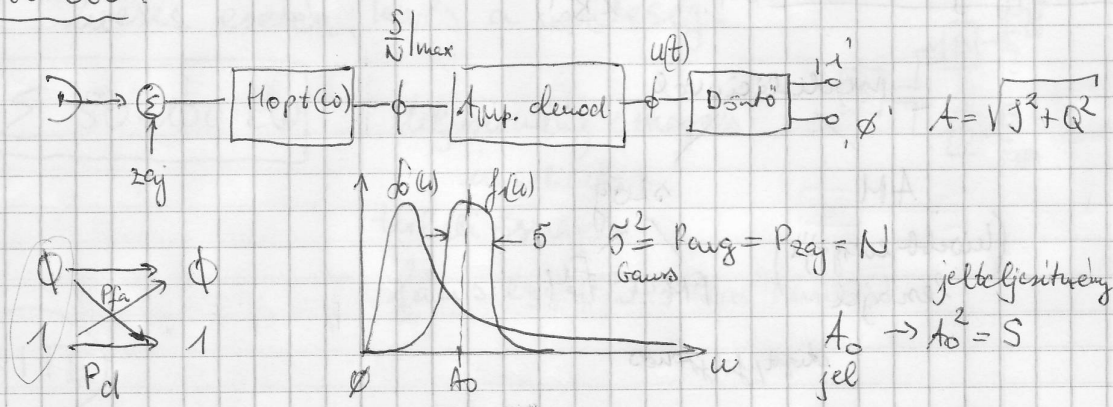 S/N |max
u(t)
Hopt(ω)
Amp. demod.
Döntő
'1'
'ϕ'
A = √J² + Q²
zaj
f₀(u)
f₁(u)
σ
σ² = Pavg = Pzaj = N
Gauss
jelteljesítmény
ϕ
Pfa
ϕ
1
1
Pd
A₀ → A₀² = S
jel
ϕ
A₀
u